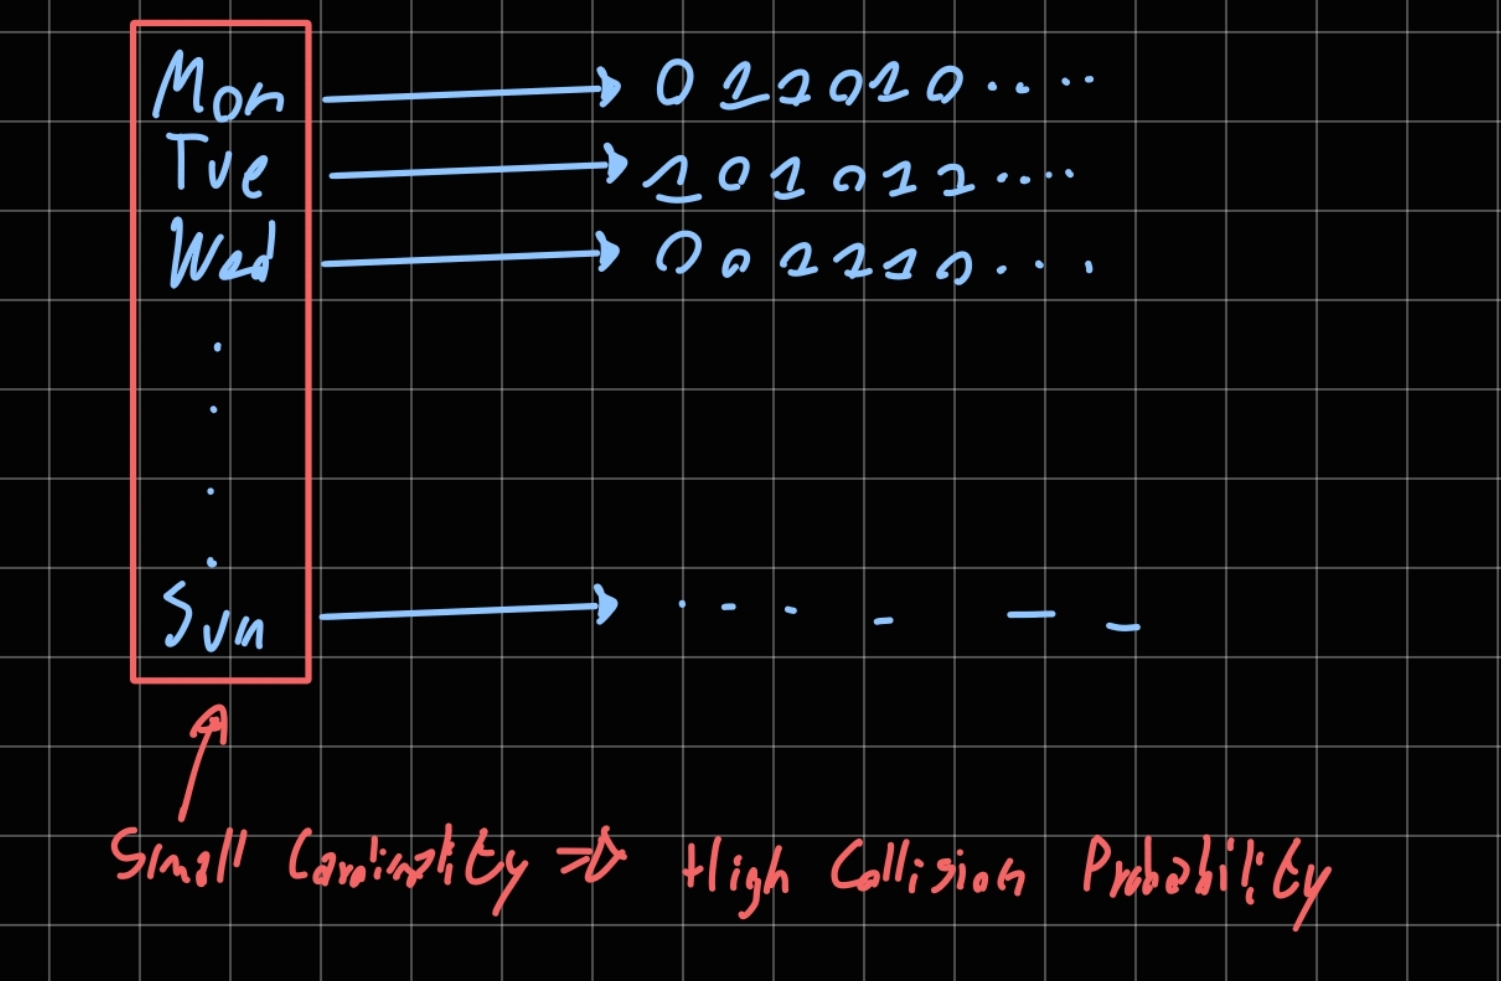 Mon → 011010.....
Tue → 101011.....
Wed → 001110...
.
.
.
.
Sun → . - - - — -
Small Cardinality => High Collision Probability